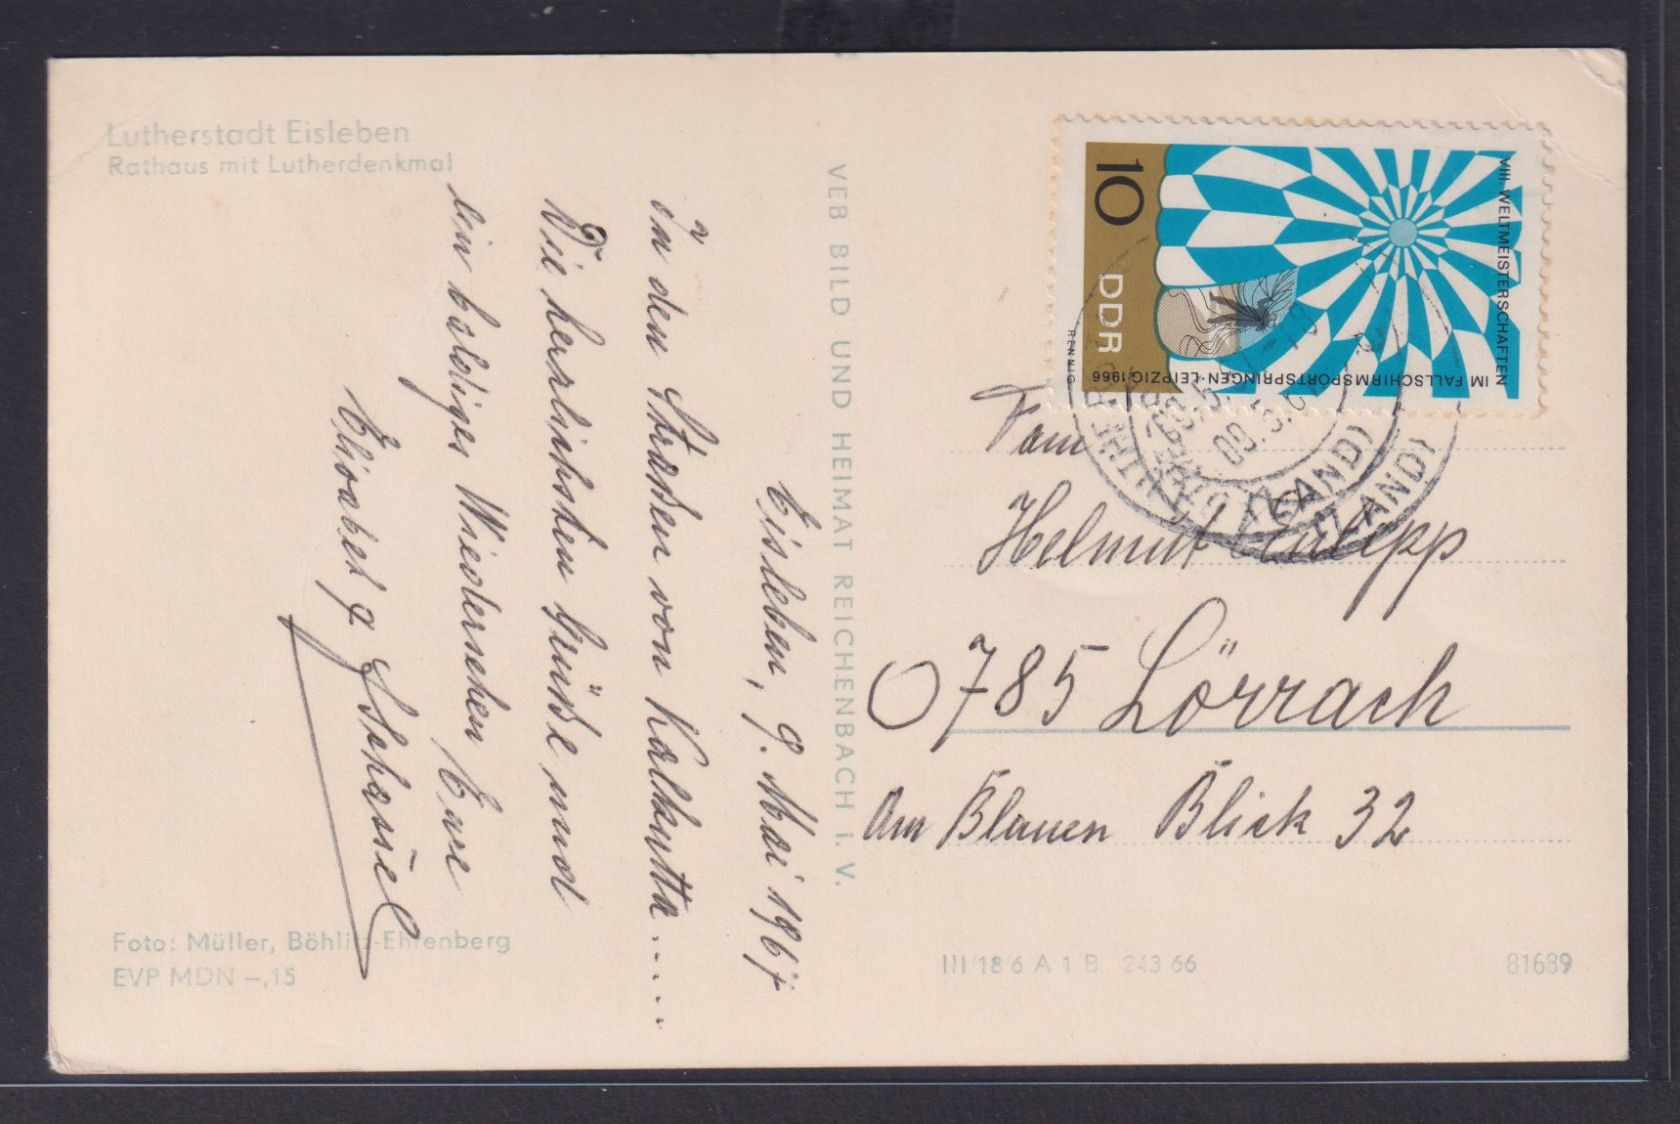 Lutherstadt Eisleben
Rathaus mit Lutherdenkmal
Eisleben, 9. Mai 1967
In den Straßen von Kalkutta.....
Die herrlichsten Grüße und
ein baldiges Wiedersehen Eure
VEB BILD UND HEIMAT REICHENBACH i. V.
Foto: Müller, Böhlitz-Ehrenberg
EVP MDN –,15
10
DDR
VIII. WELTMEISTERSCHAFTEN
IM FALLSCHIRMSPORTSPRINGEN · LEIPZIG 1966
RENNIG
(LAND)
(LAND)
Fam
Helmut
785 Lörrach
Am Blauen Blick 32
III/18/6 A 1 B 243 66
81689